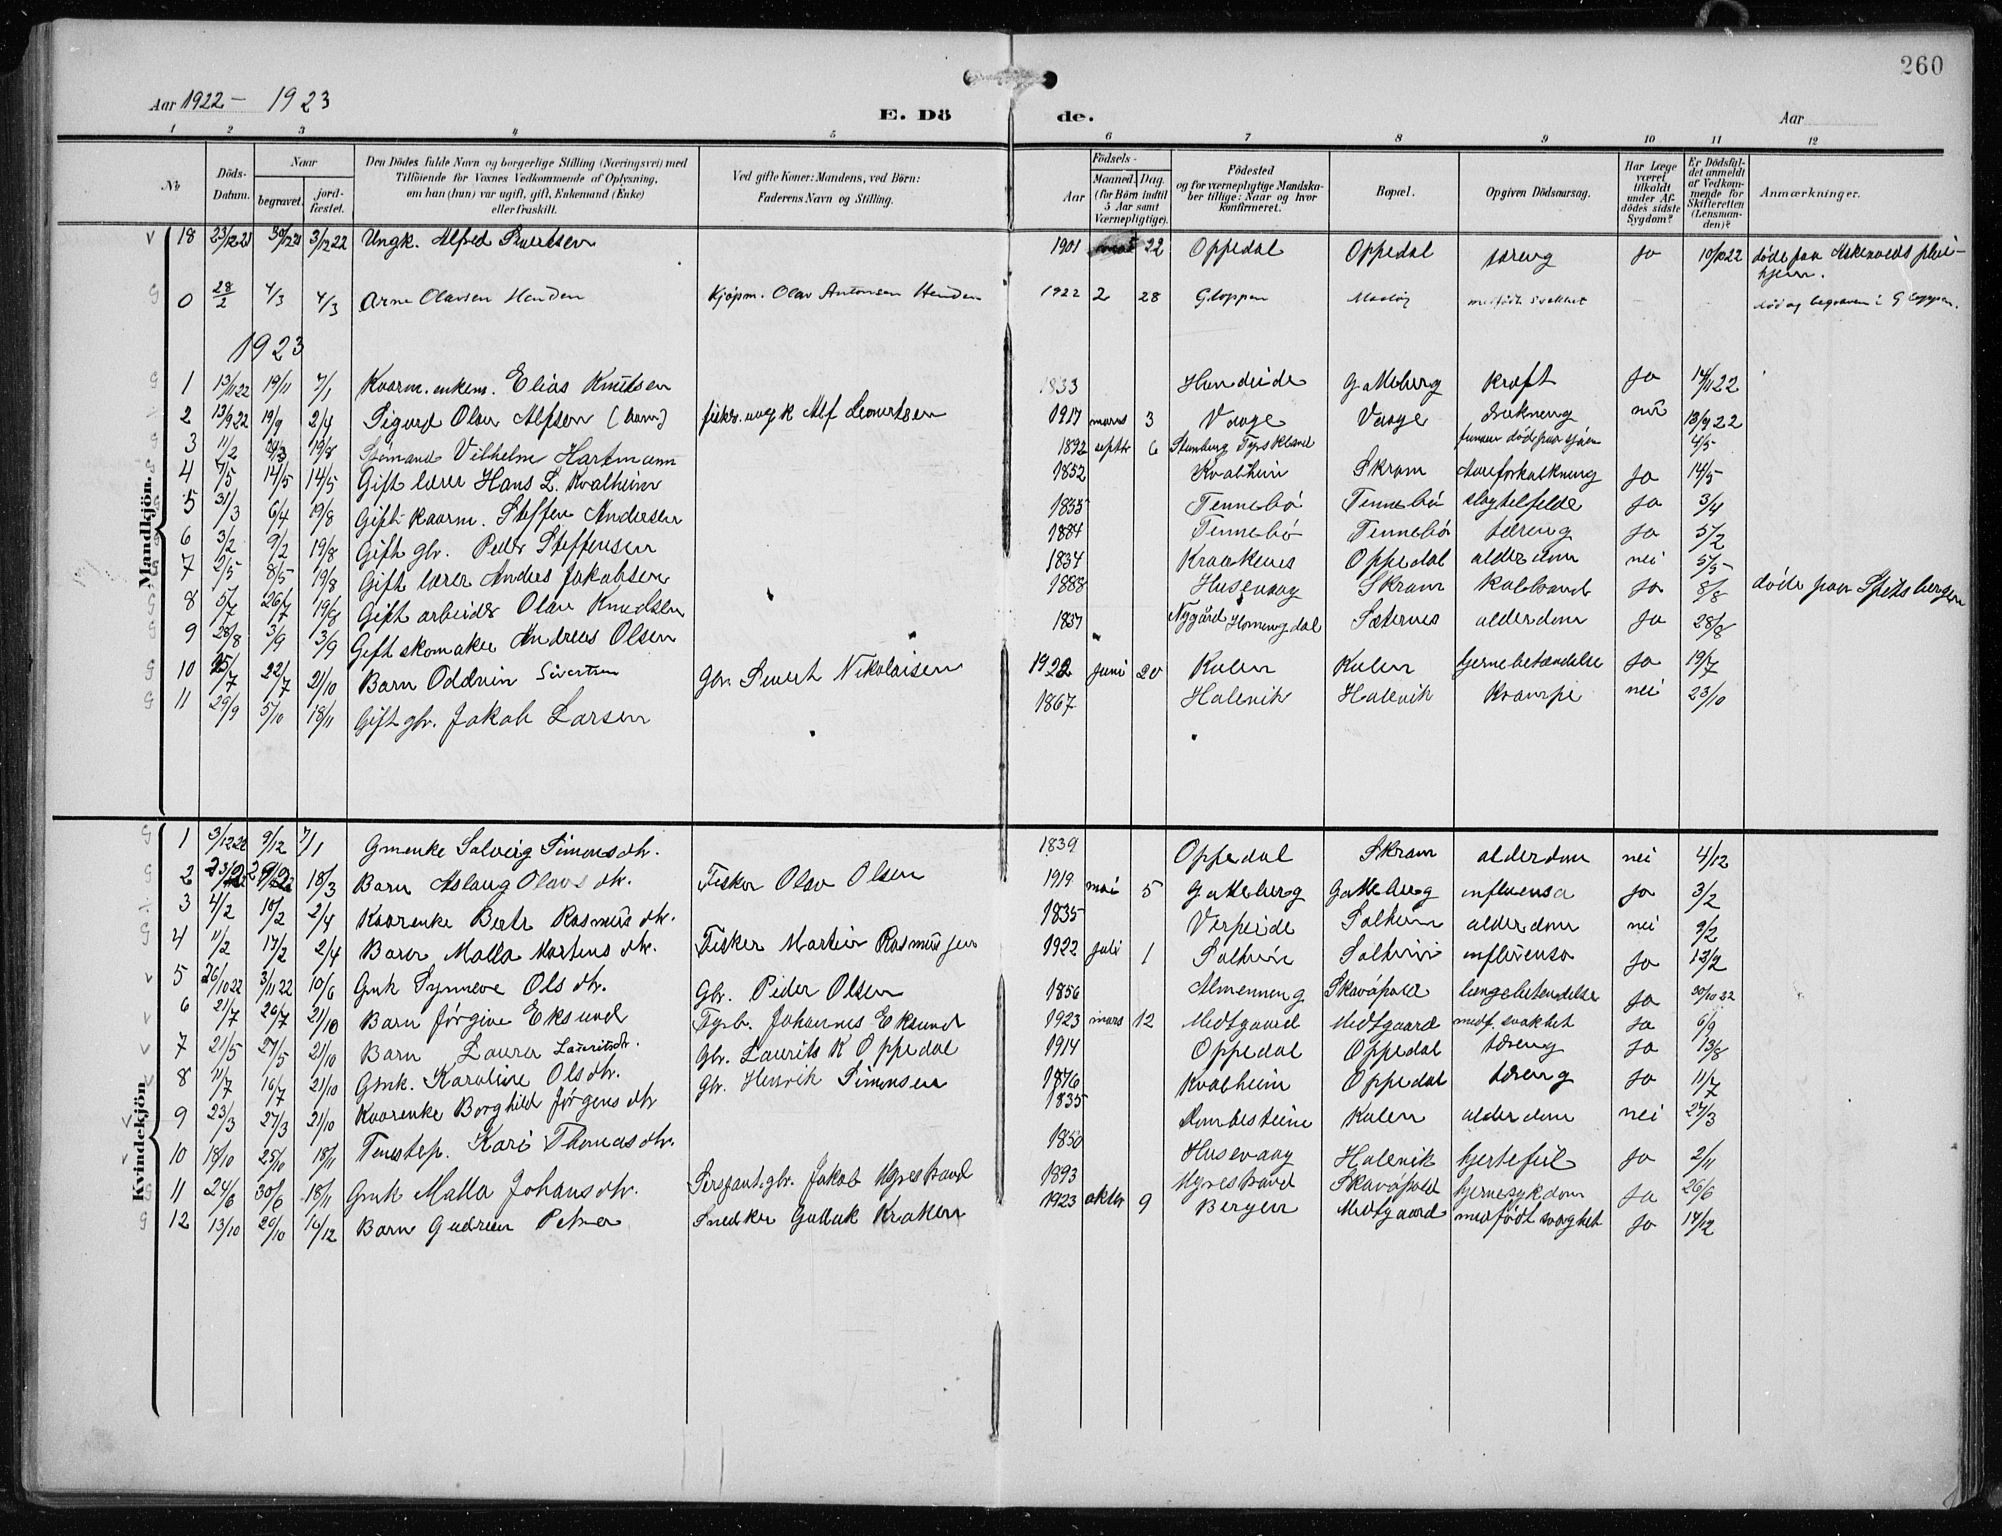 260
Aar 1922 - 1923
E. Dö de.
Aar
1 2 3 4 5 6 7 8 9 10 11 12
No
Döds-Datum.
Naar
begravet.
jord-fæstet.
Den Dödes fulde Navn og borgerlige Stilling (Næringsvei) med
Tilföiende for Voxnes Vedkommende af Oplysning,
om han (hun) var ugift, gift, Enkemand (Enke)
eller fraskilt.
Ved gifte Koner: Mandens, ved Börn:
Faderens Navn og Stilling.
Födsels-
Aar
Maaned. Dag.
(for Börn indtil
5 Aar samt
Værnepligtige).
Födested
og for værnepligtige Mandska-
ber tillige: Naar og hvor
konfirmeret.
Bopæl.
Opgiven Dödsaarsag.
Har Læge
været
tilkaldt
under Af-
dödes sidste
Sygdom?
Er Dödsfal-
det anmeldt
af Vedkom-
mende for
Skifteretten
(Lensman-
den)?
Anmærkninger.
Mandkjön.
18 23/12 21 30/12 21 3/12 22 Ungk. Alfred Sivertsen 1901 22 Oppedal Oppedal tæreng Ja 10/10 22 døde paa Askevolds pleie-
hjem.
0 28/2 4/3 4/3 Arne Olavsen Henden Kjøpm. Olav Antonsen Henden 1922 2 28 Gloppen Maaløy medfødt svakhet død og begraven i Gloppen.
1923
1 13/11 22 19/11 7/1 Kaarm. enkem. Elias Knutsen 1833 Hundeide Gatteberg Kræft Ja 14/11 22
2 13/9 22 19/9 2/4 Sigurd Olav Alfsen (barn) fisker. ungk Alf Sivertsen 1917 mars 3 Vaage Vaage drukneng nei 13/9 22
3 11/2 19/8 Vilhelm Hartmann 1892 septbr 6 Tyskland funnen død paa sjøen 4/5
4 7/5 14/5 14/5 Gift lærer Hans L. Kvalheim 1852 Kvalheim Skram Aareforkalkning Ja 14/5
5 31/3 6/4 19/8 Gift kaarm. Steffen Andersen 1835 Tennebø Tennebø slagtelfelde Ja 3/4
6 3/2 9/2 19/8 Gift gbr. Peder Steffensen 1884 Tennebø Tennebø tæreng Ja 5/2
7 2/5 8/5 19/8 Gift lærer Andres Jakobsen 1834 Kraakenes Oppedal alderdom nei 5/5
8 5/7 26/7 19/8 Gift arbeider Olav Knudsen 1888 Husevaag Skram Kolbrand Ja 8/8 døde paa Spitsbergen
9 28/8 3/9 3/9 Gift skomaker Andreas Olsen 1837 Nygård Hornengdal Sæternes alderdom Ja 28/8
10 15/7 22/7 21/10 Barn Oddvin Sivertsen Gbr. Sivert Nikolaisen 1922 juni 20 Kulen Kulen hjernebetændelse Ja 19/7
11 29/9 5/10 18/11 Gift gbr. Jakob Larsen 1867 Halevik Halevik Krampe nei 23/10
Kvindekjön
1 3/12 22 9/12 7/1 Gmenke Solveig Simonsdtr. 1839 Oppedal Skram alderdom nei 4/12
2 18/3 Barn Aslaug Olavsdtr. Fisker Olav Olsen 1919 mai 5 Gatteberg Gatteberg influensa Ja 3/2
3 4/2 10/2 2/4 Kaarenke Berte Rasmusdtr. 1835 Verpeide Salheim alderdom nei 9/2
4 11/2 17/2 2/4 Barn Malla Martensdtr. Fisker Martin Rasmussen 1922 juli 1 Salheim Salheim influensa Ja 13/2
5 26/10 22 3/11 22 10/6 Gmk Synneve Olsdtr. Gbr. Peder Olsen 1856 Almenneng Skavøpold lungebetendelse Ja 30/10 22
6 21/7 26/7 21/10 Barn Jørgine Eksund Fyrb. Johannes Eksund 1923 mars 12 Medtgaard Medtgaard medf. svakhet Ja 6/9
7 21/5 27/5 21/10 Barn Laura Lauritsdtr. Gbr. Laurits K Oppedal 1914 Oppedal Oppedal tæreng Ja 13/8
8 11/7 16/7 21/10 Gmk. Karoline Olsdtr. Gbr. Henrik Simonsen 1876 Kvalheim Oppedal tæreng Ja 11/7
9 23/3 27/3 21/10 Kaarenke Borghild Jørgensdtr 1835 Dombesteine Kulen alderdom nei 27/3
10 18/10 25/10 18/11 Kari Thomasdtr. 1850 Husevaag Halevik hjertefeil Ja 2/11
11 24/6 30/6 18/11 Gmk Malla Johansdtr. Sersjant. gbr. Jakob Myrestrand 1893 Myrestrand Skavøpold hjernesykdom Ja 26/6
12 13/10 20/10 16/12 Barn Gudrun Petra Snedker Gulluk Kraken 1923 oktbr 9 Bergen Medtgaard medfødt svaghet Ja 14/12